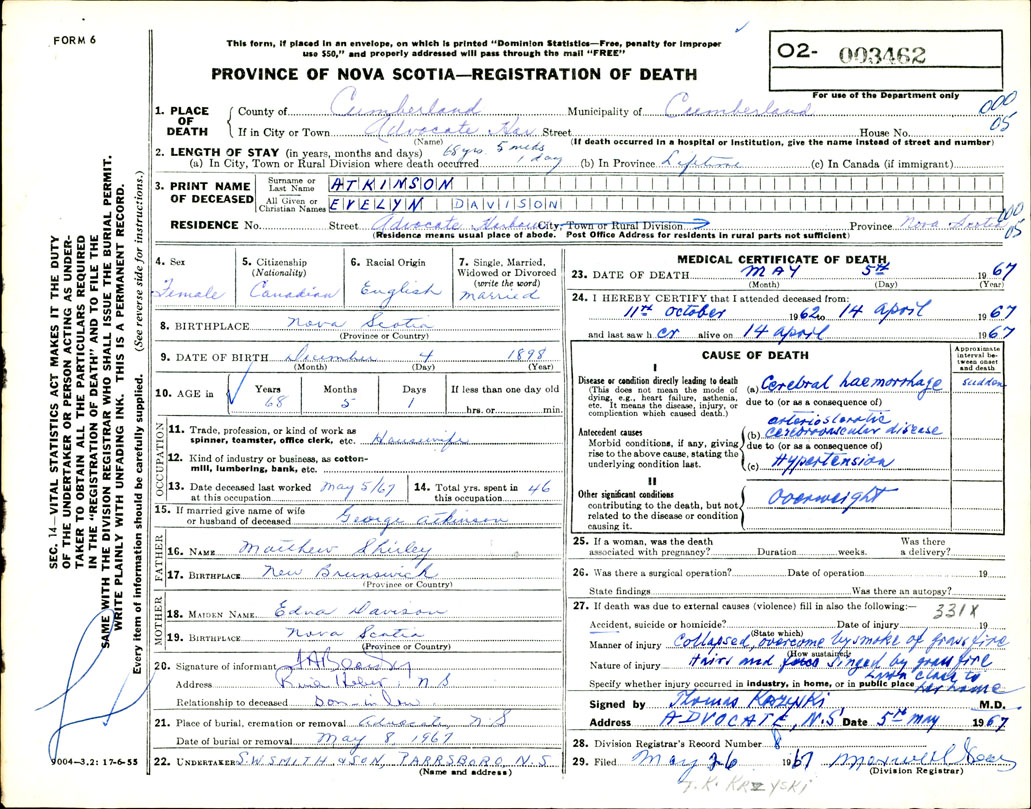 FORM 6
This form, if placed in an envelope, on which is printed "Dominion Statistics—Free, penalty for improper
use $50," and properly addressed will pass through the mail "FREE"
PROVINCE OF NOVA SCOTIA—REGISTRATION OF DEATH
O2- 003462
For use of the Department only
1. PLACE OF DEATH
County of Cumberland Municipality of Cumberland 000
If in City or Town Advocate Har Street House No. 05
(Name) (If death occurred in a hospital or institution, give the name instead of street and number)
2. LENGTH OF STAY (in years, months and days) 68 yrs. 5 mths 1 day
(a) In City, Town or Rural Division where death occurred (b) In Province Lifetime (c) In Canada (if immigrant)
3. PRINT NAME OF DECEASED
Surname or Last Name ATKINSON
All Given or Christian Names EVELYN DAVISON
RESIDENCE No. Street Advocate Harbour City, Town or Rural Division Province Nova Scotia 000 05
(Residence means usual place of abode. Post Office Address for residents in rural parts not sufficient)
4. Sex
Female
5. Citizenship
(Nationality)
Canadian
6. Racial Origin
English
7. Single, Married,
Widowed or Divorced
(write the word)
married
8. BIRTHPLACE Nova Scotia
(Province or Country)
9. DATE OF BIRTH December 4 1898
(Month) (Day) (Year)
10. AGE in Years Months Days If less than one day old
68 5 1 hrs. or min.
OCCUPATION
11. Trade, profession, or kind of work as
spinner, teamster, office clerk, etc. Housewife
12. Kind of industry or business, as cotton-
mill, lumbering, bank, etc.
13. Date deceased last worked May 5/67
at this occupation
14. Total yrs. spent in 46
this occupation
15. If married give name of wife
or husband of deceased George Atkinson
FATHER
16. NAME Matthew Shirley
17. BIRTHPLACE New Brunswick
(Province or Country)
MOTHER
18. MAIDEN NAME Edna Davison
19. BIRTHPLACE Nova Scotia
(Province or Country)
20. Signature of informant
Address River Hebert N S
Relationship to deceased Son-in-law
21. Place of burial, cremation or removal Advocate, N S
Date of burial or removal May 8 1967
22. UNDERTAKER S.W. SMITH & SON, PARRSBORO, N.S.
(Name and address)
MEDICAL CERTIFICATE OF DEATH
23. DATE OF DEATH MAY 5TH 1967
(Month) (Day) (Year)
24. I HEREBY CERTIFY that I attended deceased from:
11th October 1962 to 14 april 1967
and last saw her alive on 14 april 1967
CAUSE OF DEATH
Approximate interval between onset and death
I
Disease or condition directly leading to death
(This does not mean the mode of
dying, e.g., heart failure, asthenia,
etc. It means the disease, injury, or
complication which caused death.)
(a) Cerebral haemorrhage sudden
due to (or as a consequence of)
Antecedent causes
Morbid conditions, if any, giving
rise to the above cause, stating the
underlying condition last.
arteriosclerotic
(b) cerebrovascular disease
due to (or as a consequence of)
(c) Hypertension
II
Other significant conditions
contributing to the death, but not
related to the disease or condition
causing it.
Overweight
25. If a woman, was the death
associated with pregnancy? Duration weeks. Was there
a delivery?
26. Was there a surgical operation? Date of operation 19
State findings Was there an autopsy?
27. If death was due to external causes (violence) fill in also the following:— 331X
Accident, suicide or homicide? Date of injury 19
(State which)
Manner of injury Collapsed, overcome by smoke of grass fire
(How sustained)
Nature of injury Hairs and face singed by grass fire
Specify whether injury occurred in industry, in home, or in public place
Lawn close to
her home
Signed by Thomas Krzyski M.D.
Address ADVOCATE, N.S. Date 5th may 1967
28. Division Registrar's Record Number 8
29. Filed May 26 1967 Maxwell
(Division Registrar)
T. K. KRZYSKI
SEC. 14—VITAL STATISTICS ACT MAKES IT THE DUTY
OF THE UNDERTAKER OR PERSON ACTING AS UNDER-
TAKER TO OBTAIN ALL THE PARTICULARS REQUIRED
IN THE "REGISTRATION OF DEATH" AND TO FILE THE
SAME WITH THE DIVISION REGISTRAR WHO SHALL ISSUE THE BURIAL PERMIT.
WRITE PLAINLY WITH UNFADING INK. THIS IS A PERMANENT RECORD.
Every item of information should be carefully supplied. (See reverse side for instructions.)
9004-3.2: 17-6-55